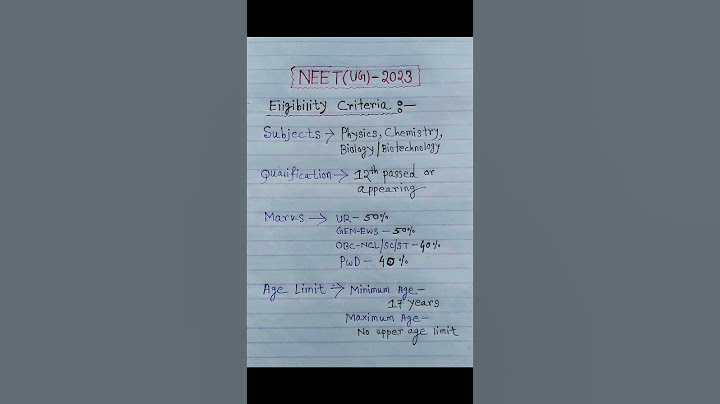 NEET(UG)-2023
Eligibility Criteria :-
Subjects → Physics, Chemistry,
Biology/Biotechnology
Qualification → 12th passed or
appearing
Marks → UR - 50%
GEN-EWS - 50%
OBC-NCL/SC/ST - 40%
PwD - 40%
Age Limit → Minimum Age -
17 years
Maximum Age -
No upper age limit